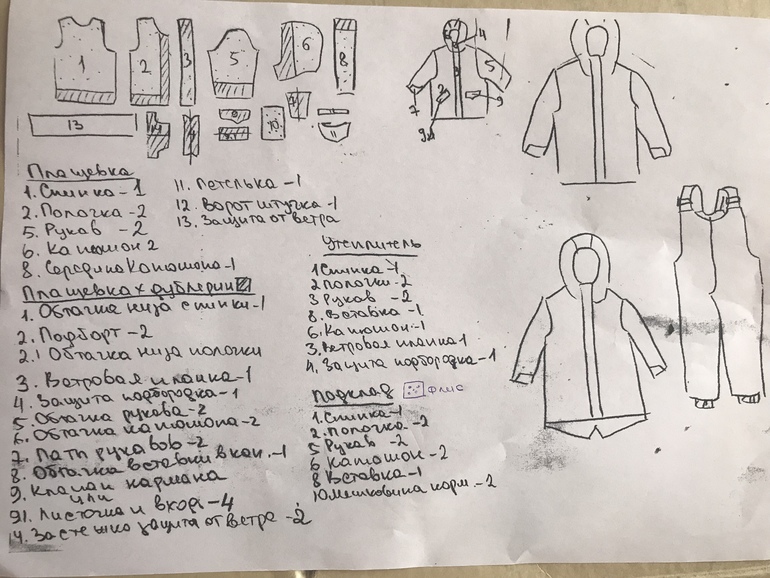 1
2
3
5
6
8
13
10
4
5
7
9
Плащевка
1. Спинка - 1
2. Полочка - 2
5. Рукав - 2
6. Капюшон 2
8. Середина Капюшона - 1
11. Петелька - 1
12. Ворот штучка - 1
13. Защита от ветра
Плащевка + дублерин
1. Обтачка низа спинки - 1
2. Подборт - 2
2.1 Обтачка низа полочки
3. Ветровая планка - 1
4. Защита подбородка - 1
5. Обтачка рукава - 2
6. Обтачка капюшона - 2
7. Паты рукавов - 2
8. Обтачка вставки в кап. - 1
9. Клапан кармана
или
91. Листочка и вход - 4
14. Застежка защита от ветра - 2
Утеплитель
1 Спинка - 1
2 полочки - 2
3 Рукав - 2
8. Вставка - 1
6. Капюшон - 1
3. Ветровая планка 1
4. Защита подбородка - 1
Подклад флис
1. Спинка - 1
2. полочка - 2
5 Рукав - 2
6 Капюшон - 2
8 Вставка - 1
10. мешковина карм. - 2